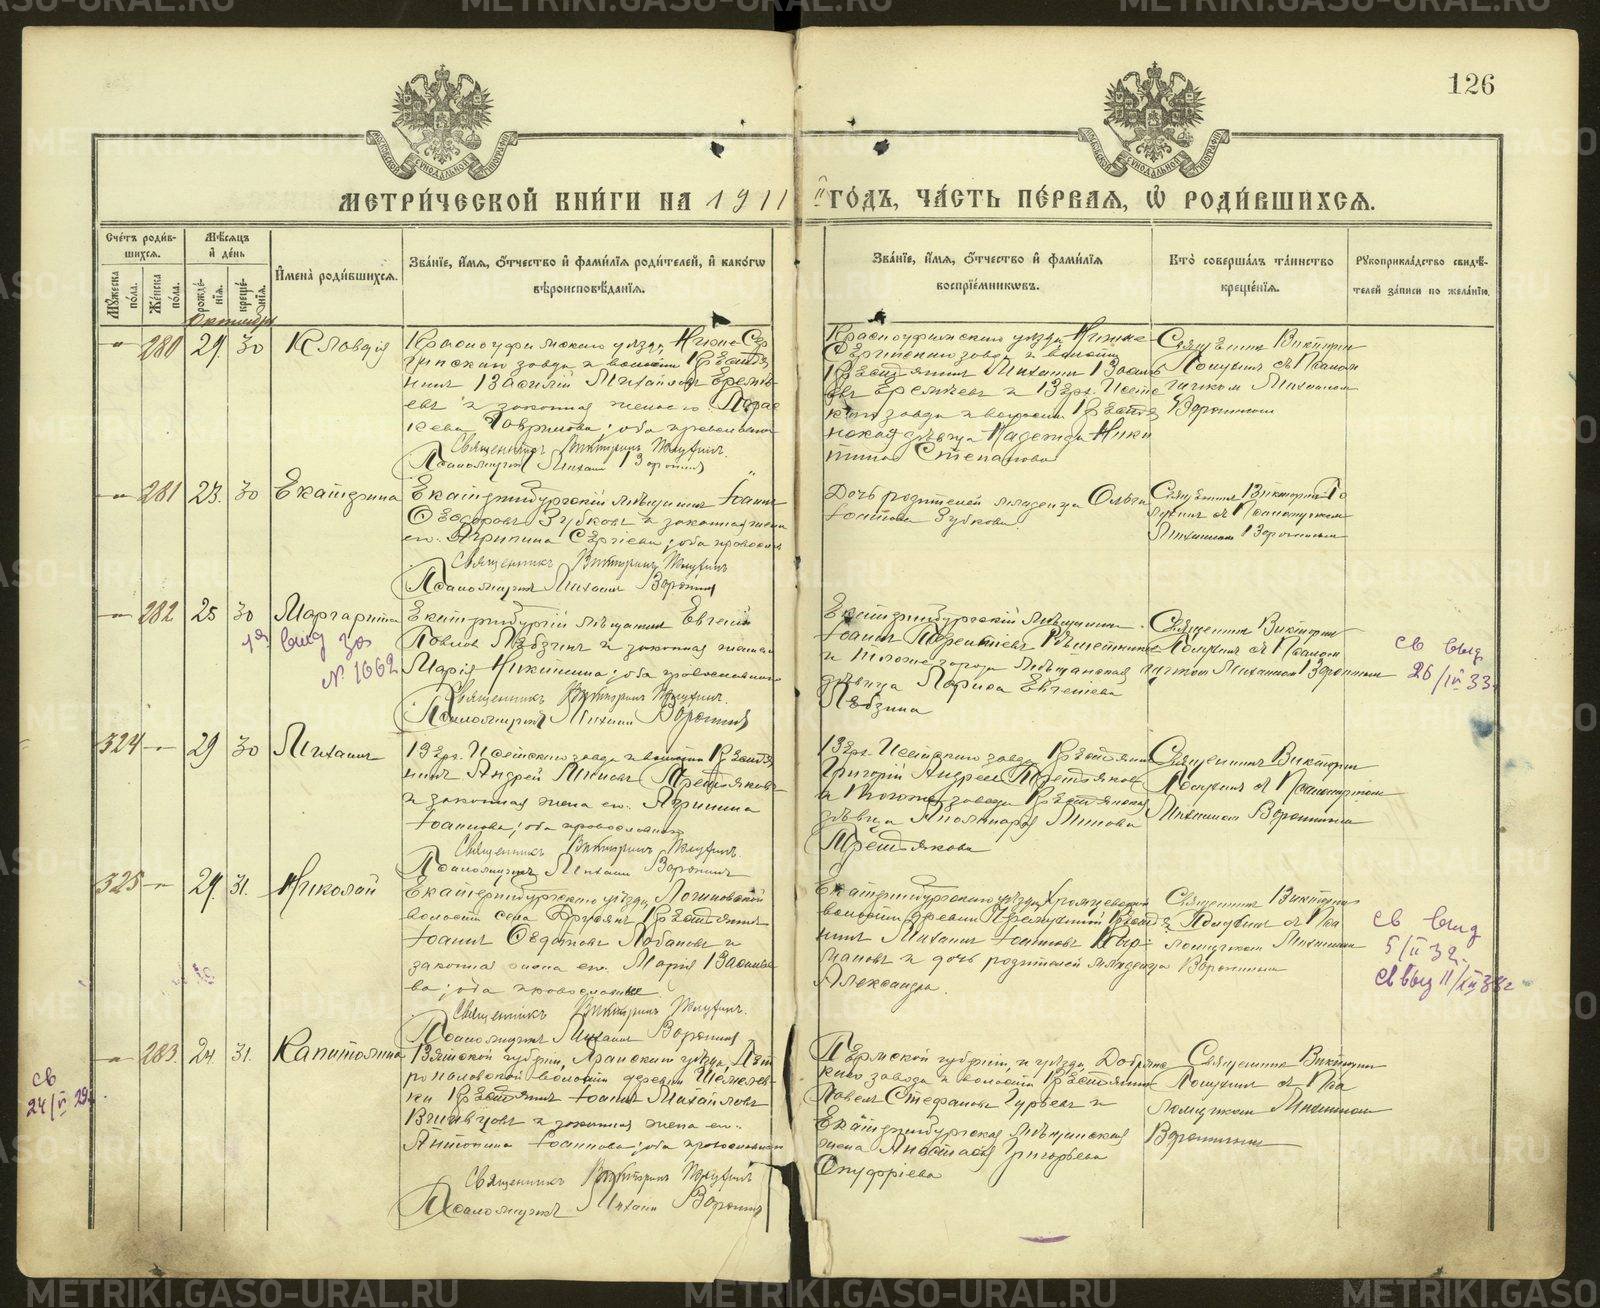 126
МЕТРИ́ЧЕСКОЙ КНИ́ГИ НА 1911 й ГО́ДЪ, ЧА́СТЬ ПЕ́РВАЯ, Ѡ РОДИ́ВШИХСЯ.
Сче́тъ роди́вшихся.
Му́жеска по́ла.
Же́нска по́ла.
Мѣ́сяцъ и҆ де́нь
рожде́нїя.
креще́нїя.
И҆мена̀ роди́вшихся.
Зва́нїе, и҆́мя, ѻ҆́тчество и҆ фами́лїя роди́телей, и҆ како́гѡ
вѣроисповѣ́данїя.
Зва́нїе, и҆́мя, ѻ҆́тчество и҆ фами́лїя
воспрїе́мниковъ.
Кто̀ соверша́лъ та́инство
креще́нїя.
Рꙋкоприкла́дство свидѣ́-
телей за́писи по жела́нїю.
Октябрь
280 29 30 Клавдія
Красноуфимскаго уѣзда, Нижне-Сер
гинскаго завода и волости Крестья
нинъ Василій Михайловъ Еремѣ
евъ и законная жена его Парас
кева Гаврилова; оба православные
Священникъ Викторинъ
Псаломщикъ Михаилъ Воронинъ
Красноуфимскаго уѣзда Нижне
Сергинскаго завода и волости
Крестьянинъ Михаилъ Василь
евъ Еремѣевъ и Верх-Исетс
каго завода и волости Крестья
нская дѣвица Надежда Ники
тина Степанова
Священникъ Викторинъ
съ Псалом
щикомъ Михаиломъ
Воронинымъ
281 23. 30 Екатерина
Екатеринбургскій мѣщанинъ Іоаннъ
Ѳеодоровъ Зубковъ и законная жена
его Агрипина Сергіева; оба православн
Священникъ Викторинъ
Псаломщикъ Михаилъ Воронинъ
Дочь родителей младенца Ольга
Іоаннова Зубкова.
Священникъ Викторинъ
съ Псаломщикомъ
Михаиломъ Воронинымъ
282 25 30 Маргарита
№ 1662
Екатеринбургскій мѣщанинъ Евгеній
Павловъ Лебзинъ и законная жена его
Марія Никитина; оба православные
Священникъ Викторинъ
Псаломщикъ Михаилъ Воронинъ
Екатеринбургскій мѣщанинъ
Іоаннъ Терентіевъ Рѣшетниковъ
и того же города мѣщанская
дѣвица Лариса Евгеніева
Лебзина
Священникъ Викторинъ
съ Псалом
щикомъ Михаиломъ Воронинымъ
св выд
26/IV 33
324 29 30 Михаилъ
Верх. Исетскаго завода и волости Крестья
нинъ Андрей Миновъ Третьяковъ
и законная жена его Агрипина
Іоаннова; оба православные
Священникъ Викторинъ
Псаломщикъ Михаилъ Воронинъ
Верх. Исетскаго завода Крестьянинъ
Григорій Андреевъ Третьяковъ
и того же завода Крестьянская
дѣвица Аполинарія Минова
Третьякова
Священникъ Викторинъ
съ Псаломщикомъ
Михаиломъ Воронинымъ
325 29. 31. Николай
Екатеринбургскаго уѣзда, Логиновской
волости села Крестьянинъ
Іоаннъ Лобановъ и
законная жена его Марія Василье
ва; оба православные
Священникъ Викторинъ
Псаломщикъ Михаилъ Воронинъ
Екатеринбургскаго уѣзда,
волости деревни Крестья
нинъ Михаилъ Іоанновъ
и дочь родителей младенца
Александра.
Священникъ Викторинъ
съ Пса
ломщикомъ Михаиломъ
Воронинымъ
св выд
5/II 32.
св выд 11/
283. 24. 31. Капитолина
св
24/V 29
Вятской губерніи, Яранскаго уѣзда,
волости деревни
Крестьянинъ Іоаннъ Михайловъ
и законная жена его
Антонина Іоаннова; оба православные
Священникъ Викторинъ
Псаломщикъ Михаилъ Воронинъ
Пермской губерніи, и уѣзда, Добрянс
каго завода и волости Крестьянинъ
Павелъ Стефановъ Гурьевъ и
Екатеринбургская мѣщанская
жена Анастасія Григорьева
Онуфріева
Священникъ Викторинъ
съ Пса
ломщикомъ Михаиломъ
Воронинымъ
METRIKI.GASO-URAL.RU